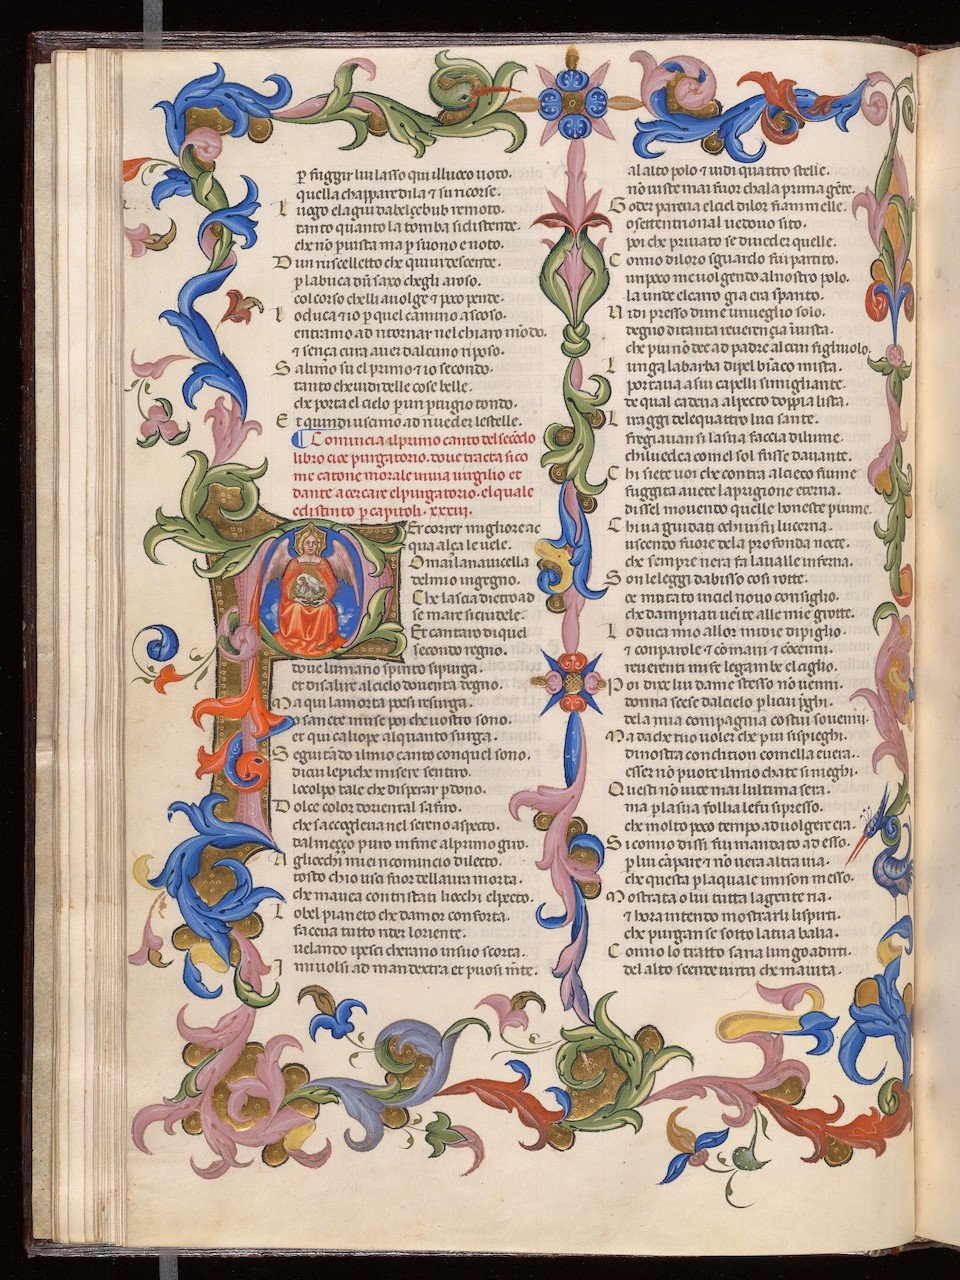 p fuggir lui lasso qui illuoco uoto.
quella chappare dila & su ricorse.
Luogo e la giu da belçebub remoto.
tanto quanto la tomba si distende.
che nō p uista ma p suono e noto.
Dun ruscelletto che quiui descende.
p la buca dū saxo chegli a roso.
col corso chelli auolge & poco pende.
Lo duca & io p quel camino ascoso.
entramo ad ritornar nel chiaro mōdo.
& sença cura auer dalcuno riposo.
Salimo su el primo & io secondo.
tanto che uidi delle cose belle.
che porta el cielo p un ptugio tondo.
Et quindi uscimo ad riueder le stelle.
Comincia il primo canto del secōdo
libro cioe purgatorio. doue tracta sico
me catone morale inuia uirgilio et
dante a cercare el purgatorio. el quale
e distinto p capitoli. xxxiij.
Per correr miglior e ac
qua alça le uele.
Omai la nauicella
del mio ingegno.
Che lascia dietro ad
se mare si crudele.
Et cantaro di quel
secondo regno.
doue lumano spirito si purga.
et di salire al cielo douenta degno.
Ma qui la morta poesi resurga.
o sancte muse poi che uostro sono.
et qui caliope alquanto surga.
Seguitādo il mio canto con quel sono.
di cui le piche misere sentiro.
lo colpo tale che disperar pdono.
Dolce color doriental safiro.
che saccoglieua nel sereno aspecto.
dal meçço puro infine al primo giro.
Agliocchi miei ricomincio dilecto.
tosto chio usci fuor dellaura morta.
che mauea contristati liocchi el pecto.
Lo bel pianeto che damor conforta.
faceua tutto rider loriente.
uelando ipesci cherano in suo scorta.
I mi uolsi ad man dextra et puosi mēte.
al alto polo & uidi quattro stelle.
nō uiste mai fuor cha la prima gēte.
Goder pareua el ciel di lor fiammelle.
o settentrional uedouo sito.
poi che priuato se di ueder quelle.
Comio di loro sguardo fui partito.
un poco me uolgendo al nostro polo.
la unde el carro gia era sparito.
Uidi presso di me un ueglio solo.
degno di tanta reuerençia ī uista.
che piu nō dee ad padre alcun figliuolo.
Lunga la barba di pel biāco mista.
portaua a sui capelli simigliante.
de qual cadeua al pecto doppia lista.
Li raggi dele quatro luci sante.
fregiauan si la sua faccia di lume.
chi uedea come l sol fusse dauante.
Chi siete uoi che contra al cieco fiume
fuggita auete la prigione eterna.
dissel mouendo quelle honeste piume.
Chi ua guidati o chi ui fu lucerna.
uscendo fuore dela profonda nocte.
che sempre nera fa la ualle inferna.
Son le leggi dabisso cosi rotte.
ce mutato in ciel nouo consiglio.
che dampnati uēite alle mie grotte.
Lo duca mio allor mi die di piglio.
& con parole & cō mani & cō cenni.
reuerenti mi fe le gambe el ciglio.
Poi dixe lui da me stesso nō uenni.
donna scese dal cielo p li cui pghi.
dela mia compagnia costui souenni.
Ma da che tuo uoler che piu si spieghi.
di nostra condition comella e uera.
esser nō puote il mio cha te si nieghi.
Questi nō uite mai lultima sera.
ma p la sua follia le fu si presso.
che molto poco tempo ad uolgere era.
Si como dissi fui mandato ad esso.
p lui cāpare & nō uera altra uia.
che questa p la quale i mi son messo.
Mostrata o lui tutta la gente ria.
& hora intendo mostrarli li spirti.
che purgan se sotto la tua balia.
Comio lo tratto saria lungo a dirti.
del alto scende uirtu che maiuta.